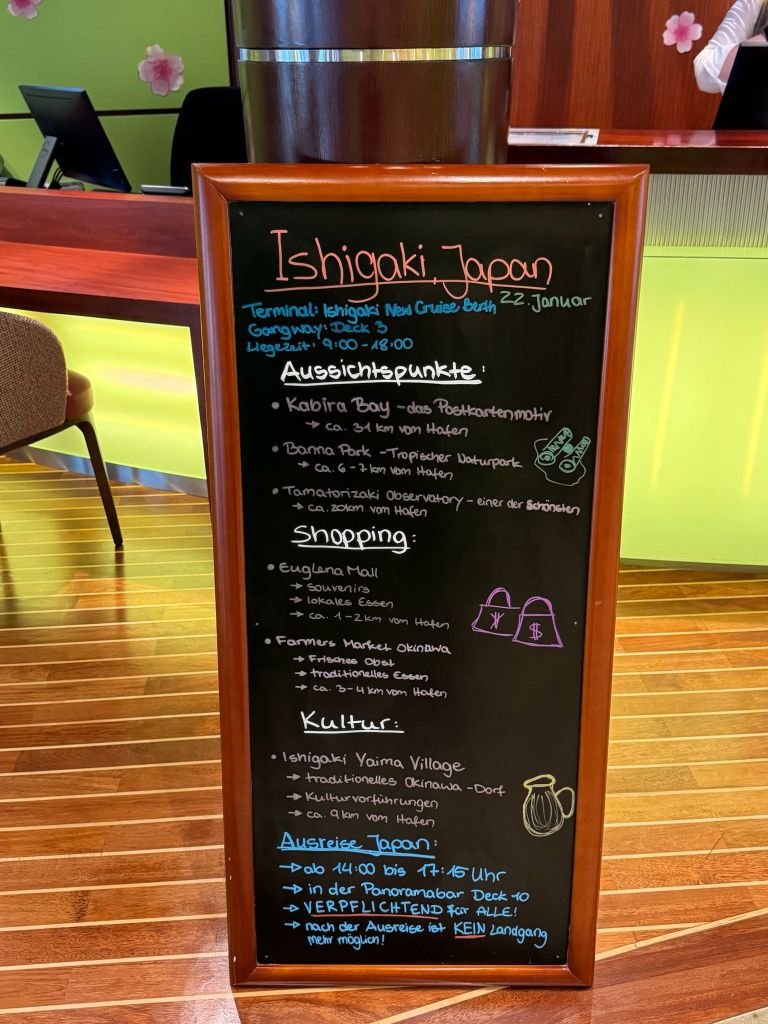 Ishigaki, Japan
22. Januar
Terminal: Ishigaki New Cruise Berth
Gangway: Deck 3
Liegezeit: 9:00 - 18:00
Aussichtspunkte:
• Kabira Bay - das Postkartenmotiv
→ ca. 31 km vom Hafen
• Banna Park - Tropischer Naturpark
→ ca. 6-7 km vom Hafen
• Tamatorizaki Observatory - einer der Schönsten
→ ca. 20km vom Hafen
Shopping:
• Euglena Mall
→ souvenirs
→ lokales Essen
→ ca. 1-2 km vom Hafen
¥ $
• Farmers Market Okinawa
→ Frisches Obst
→ traditionelles Essen
→ ca. 3-4 km vom Hafen
Kultur:
• Ishigaki Yaima Village
→ traditionelles Okinawa-Dorf
→ Kulturvorführungen
→ ca. 9 km vom Hafen
Ausreise Japan:
→ ab 14:00 bis 17:15 Uhr
→ in der Panoramabar Deck 10
→ VERPFLICHTEND für ALLE!
→ nach der Ausreise ist KEIN Landgang
mehr möglich!